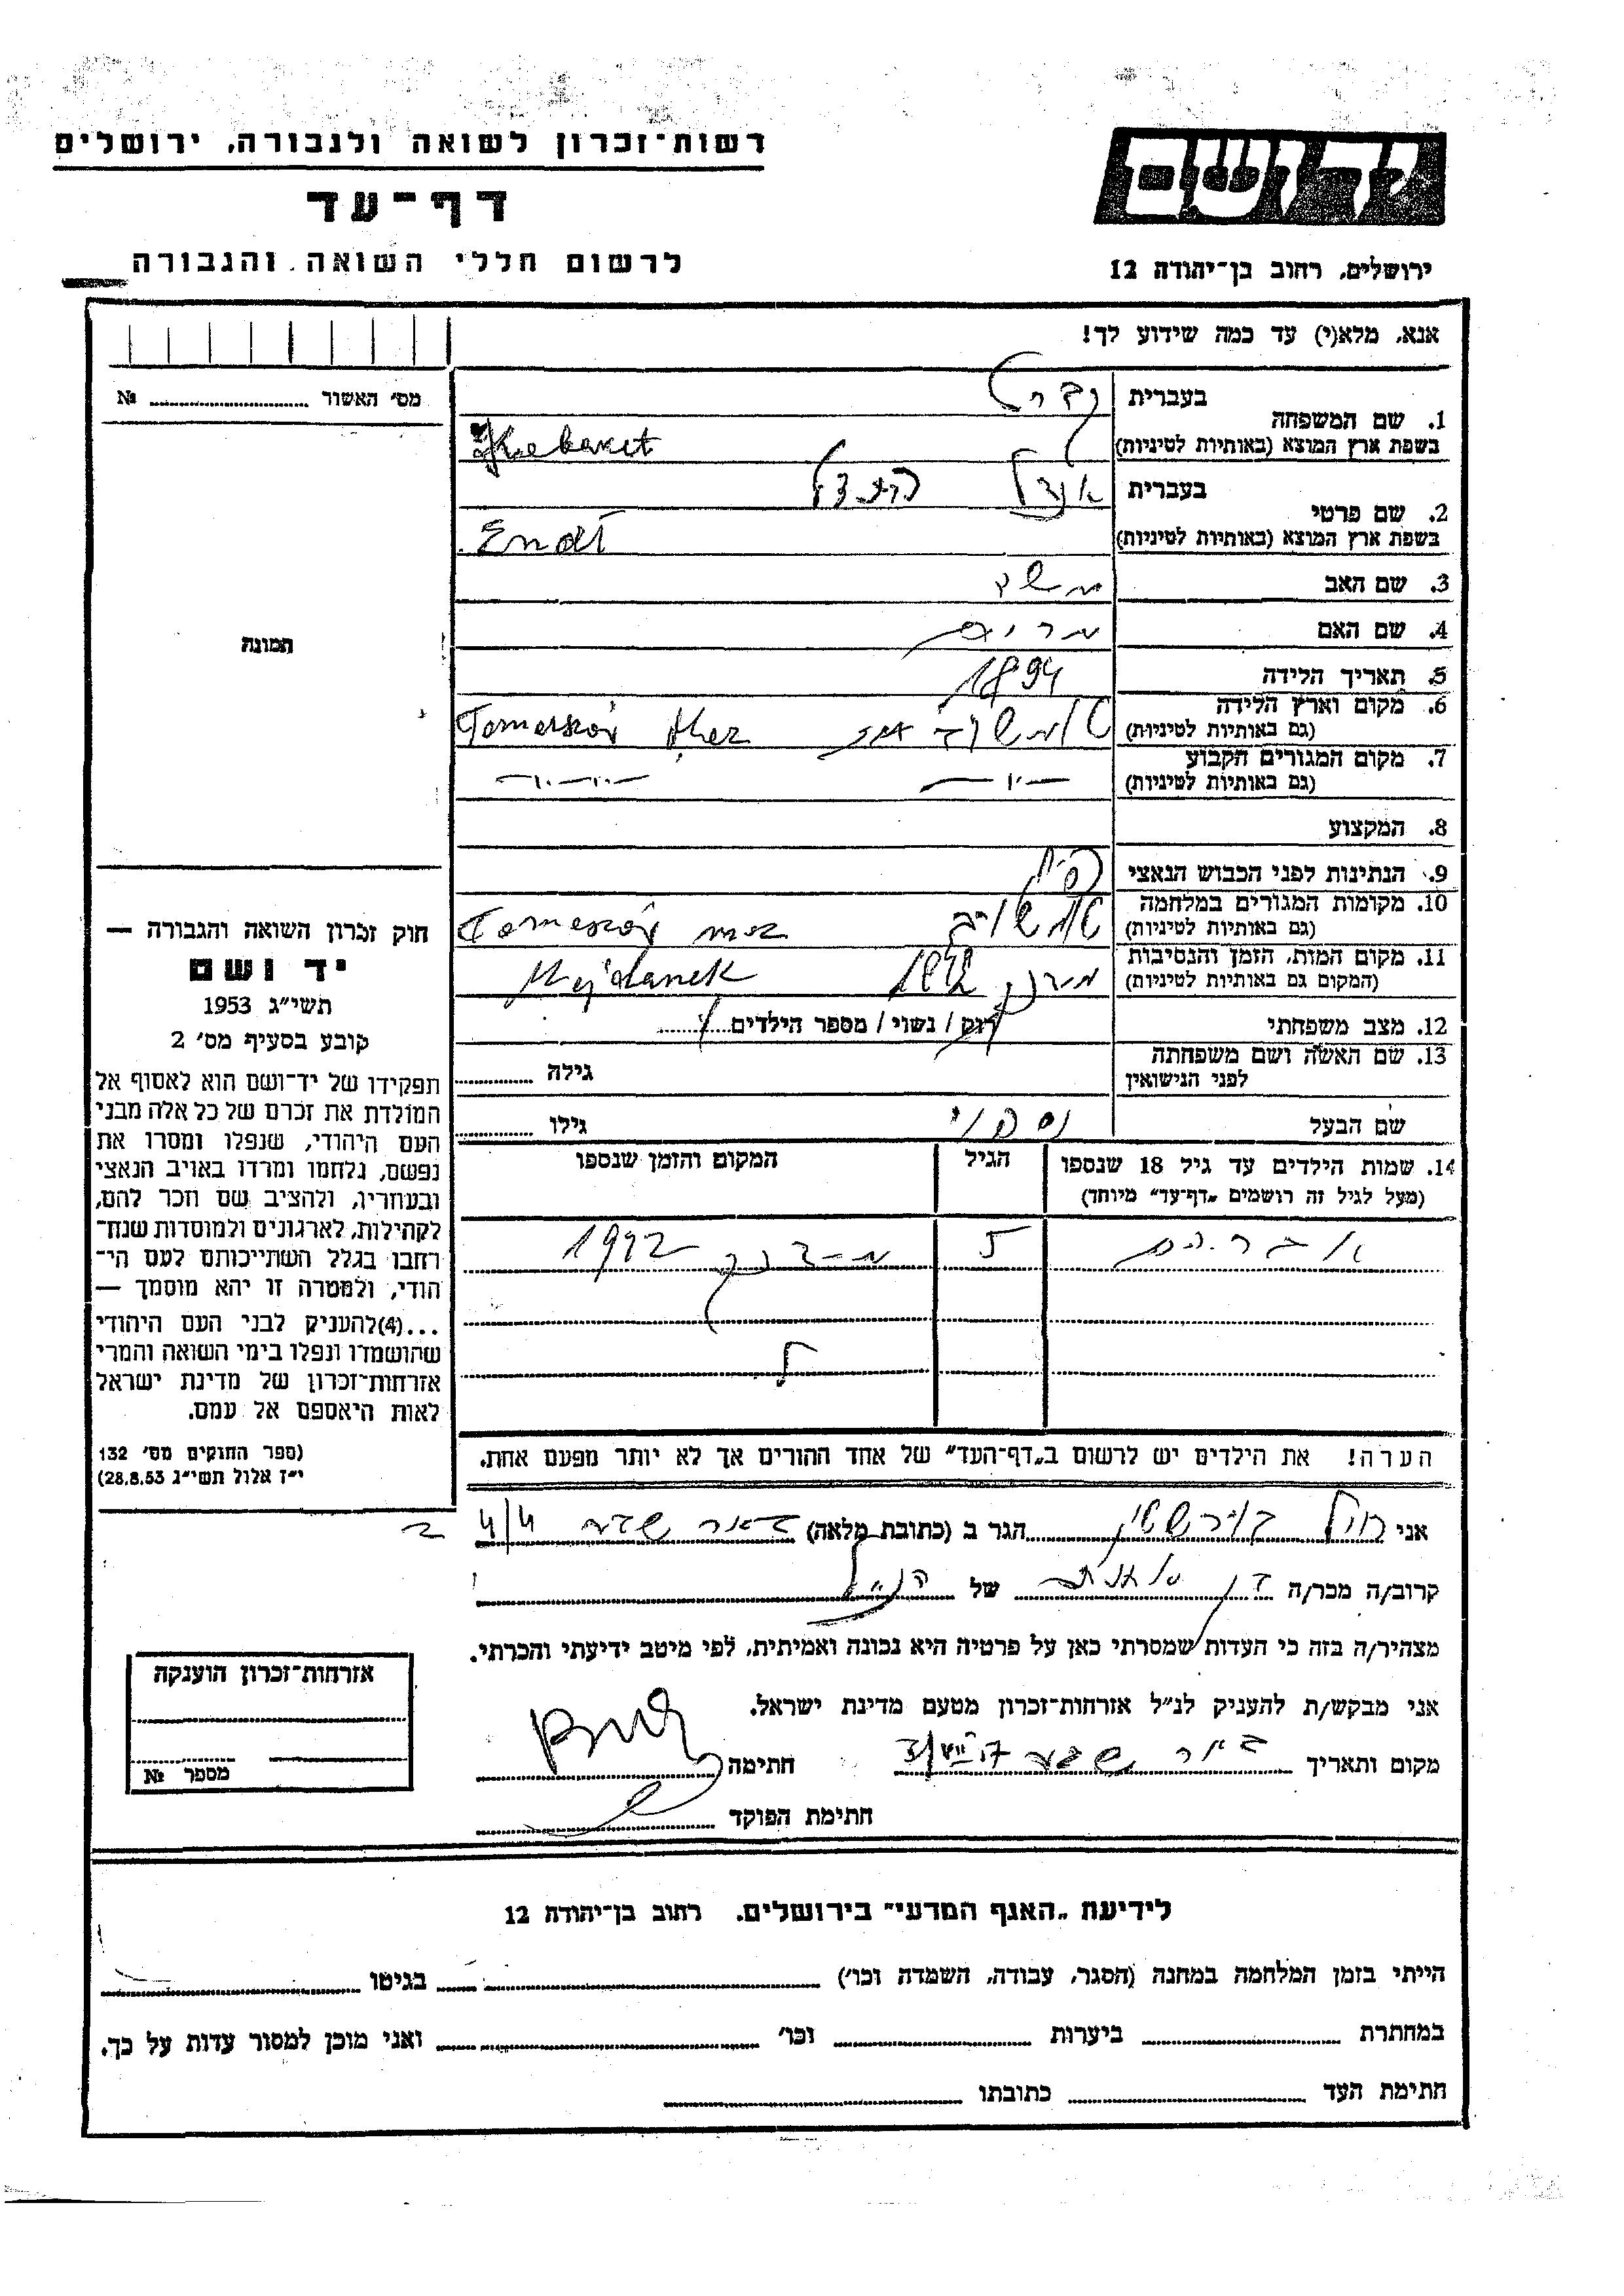 רשות־זכרון לשואה ולגבורה, ירושלים
יד ושם
דף־עד
לרשום חללי השואה והגבורה
ירושלים, רחוב בן־יהודה 12
אנא, מלא(י) עד כמה שידוע לך!
מס׳ האשור № 
1. שם המשפחה
בעברית
בשפת ארץ המוצא (באותיות לטיניות)
2. שם פרטי
בעברית
בשפת ארץ המוצא (באותיות לטיניות)
3. שם האב משה
4. שם האם מרים
5. תאריך הלידה 1894
6. מקום וארץ הלידה
(גם באותיות לטיניות)
7. מקום המגורים הקבוע
(גם באותיות לטיניות)
8. המקצוע
9. הנתינות לפני הכבוש הנאצי
10. מקומות המגורים במלחמה
(גם באותיות לטיניות)
11. מקום המות, הזמן והנסיבות Majdanek
(המקום גם באותיות לטיניות)
12. מצב משפחתי רווק / נשוי / מספר הילדים
13. שם האשה ושם משפחתה
לפני הנישואין
גילה
שם הבעל
גילו
14. שמות הילדים עד גיל 18 שנספו
(מעל לגיל זה רושמים „דף־עד״ מיוחד)
הגיל
המקום והזמן שנספו
אברהם 5 1942
הערה! את הילדים יש לרשום ב„דף־העד״ של אחד ההורים אך לא יותר מפעם אחת.
אני הגר ב (כתובת מלאה) באר שבע
קרוב/ה מכר/ה של הנ״ל
מצהיר/ה בזה כי העדות שמסרתי כאן על פרטיה היא נכונה ואמיתית, לפי מיטב ידיעתי והכרתי.
אני מבקש/ת להעניק לנ״ל אזרחות־זכרון מטעם מדינת ישראל.
מקום ותאריך באר שבע חתימה
חתימת הפוקד
תמונה
חוק זכרון השואה והגבורה —
יד ושם
תשי״ג 1953
קובע בסעיף מס׳ 2
תפקידו של יד־ושם הוא לאסוף אל
המולדת את זכרם של כל אלה מבני
העם היהודי, שנפלו ומסרו את
נפשם, נלחמו ומרדו באויב הנאצי
ובעוזריו, ולהציב שם וזכר להם,
לקהילות, לארגונים ולמוסדות שנח־
רחבו בגלל השתייכותם לעם הי־
הודי, ולמטרה זו יהא מוסמך —
...(4)להעניק לבני העם היהודי
שהושמדו ונפלו בימי השואה והמרי
אזרחות־זכרון של מדינת ישראל
לאות היאספם אל עמם.
(ספר החוקים מס׳ 132
י״ז אלול תשי״ג 28.8.53)
אזרחות־זכרון הוענקה
מספר №
לידיעת „האגף המדעי״ בירושלים, רחוב בן־יהודה 12
הייתי בזמן המלחמה במחנה (הסגר, עבודה, השמדה וכו׳) בגיטו
במחתרת ביערות וכו׳ ואני מוכן למסור עדות על כך.
חתימת העד כתובתו